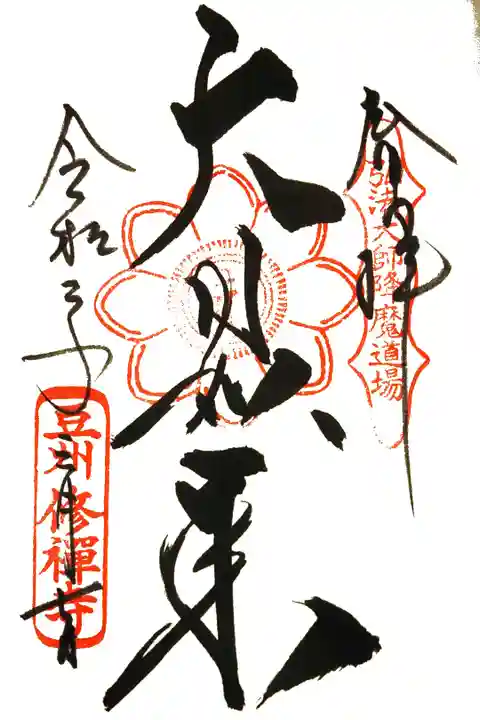 奉拝
弘法大師降魔道場
大日如来
令和三年
豆州修禪寺